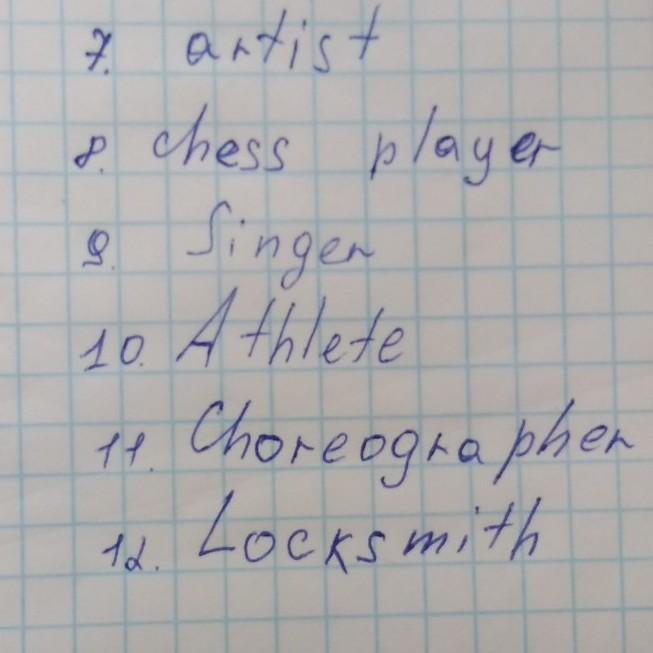 7. artist
8. chess player
9. Singer
10. Athlete
11. Choreographer
12. Locksmith